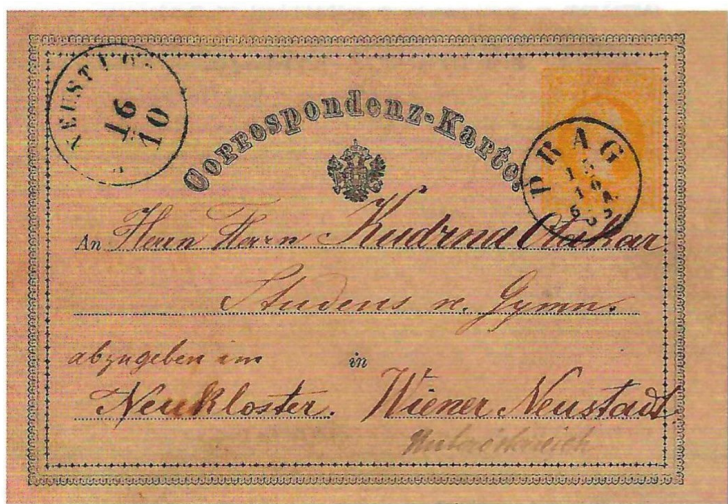 NEUSTADT
16
10
Correspondenz-Karte.
PRAG
15
10
An Herrn Herrn Kudrna Otakar
Studens n. Gymn.
abzugeben im in
Neukloster. Wiener Neustadt
Unterösterreich